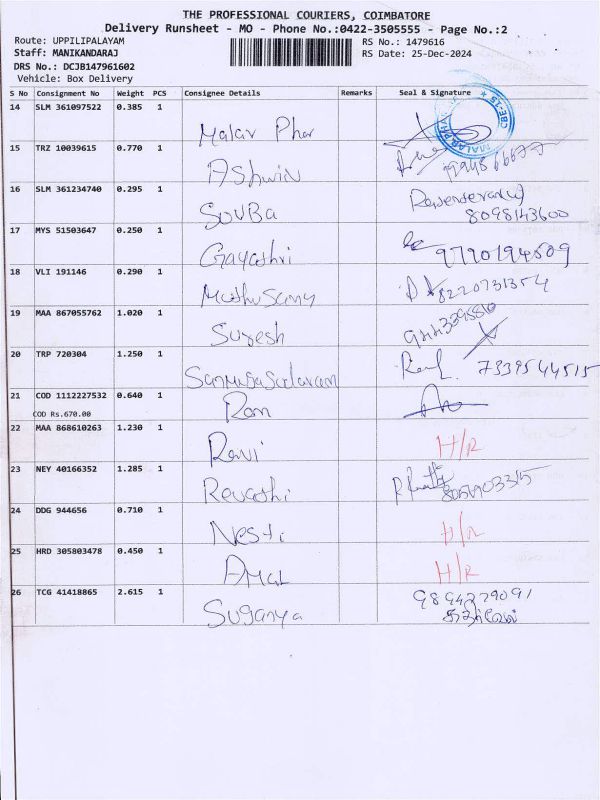 THE PROFESSIONAL COURIERS, COIMBATORE
Delivery Runsheet - MO - Phone No.:0422-3505555 - Page No.:2
Route: UPPILIPALAYAM RS No.: 1479616
Staff: MANIKANDARAJ RS Date: 25-Dec-2024
DRS No.: DCJB147961602
Vehicle: Box Delivery
S No Consignment No Weight PCS Consignee Details Remarks Seal & Signature
14 SLM 361097522 0.385 1
Malar Phar
15 TRZ 10039615 0.770 1
Ashwin
16 SLM 361234740 0.295 1
SOUBA 8098143600
17 MYS 51503647 0.250 1
Gayathri 9790194509
18 VLI 191146 0.290 1
Muthusamy 8220731354
19 MAA 867055762 1.020 1
Suresh
20 TRP 720304 1.250 1
7339544515
21 COD 1112227532 0.640 1
COD Rs.670.00
Ram
22 MAA 868610263 1.230 1
Ravi H/R
23 NEY 40166352 1.285 1
Revathi
24 DDG 944656 0.710 1
H/R
25 HRD 305803478 0.450 1
Amal H/R
26 TCG 41418865 2.615 1
Suganya
கதிர்வேல்